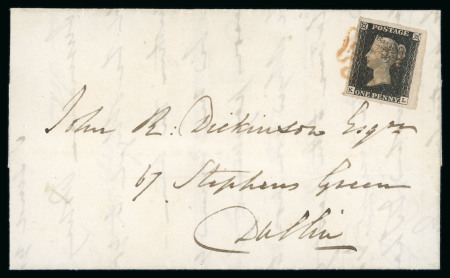 POSTAGE
S L
ONE PENNY
John R: Dickinson Esqre
67 Stephens Green
Dublin